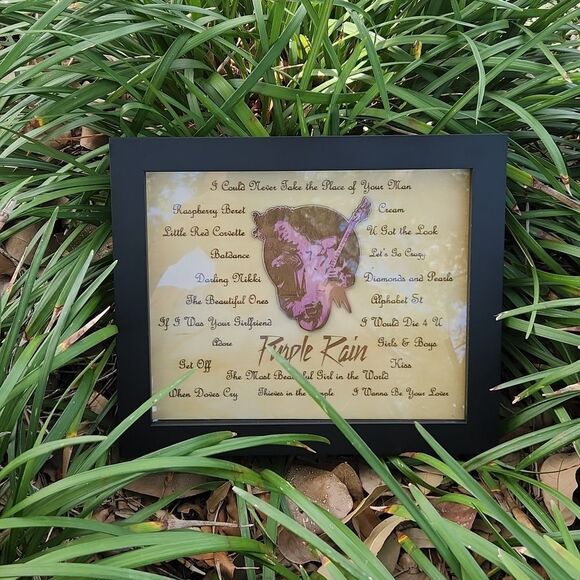 I Could Never Take the Place of Your Man
Raspberry Beret Cream
Little Red Corvette U Got the Look
Batdance Let's Go Crazy
Darling Nikki Diamonds and Pearls
The Beautiful Ones Alphabet St
If I Was Your Girlfriend I Would Die 4 U
Adore Purple Rain Girls & Boys
Get Off Kiss
The Most Beautiful Girl in the World
When Doves Cry Thieves in the Temple I Wanna Be Your Lover